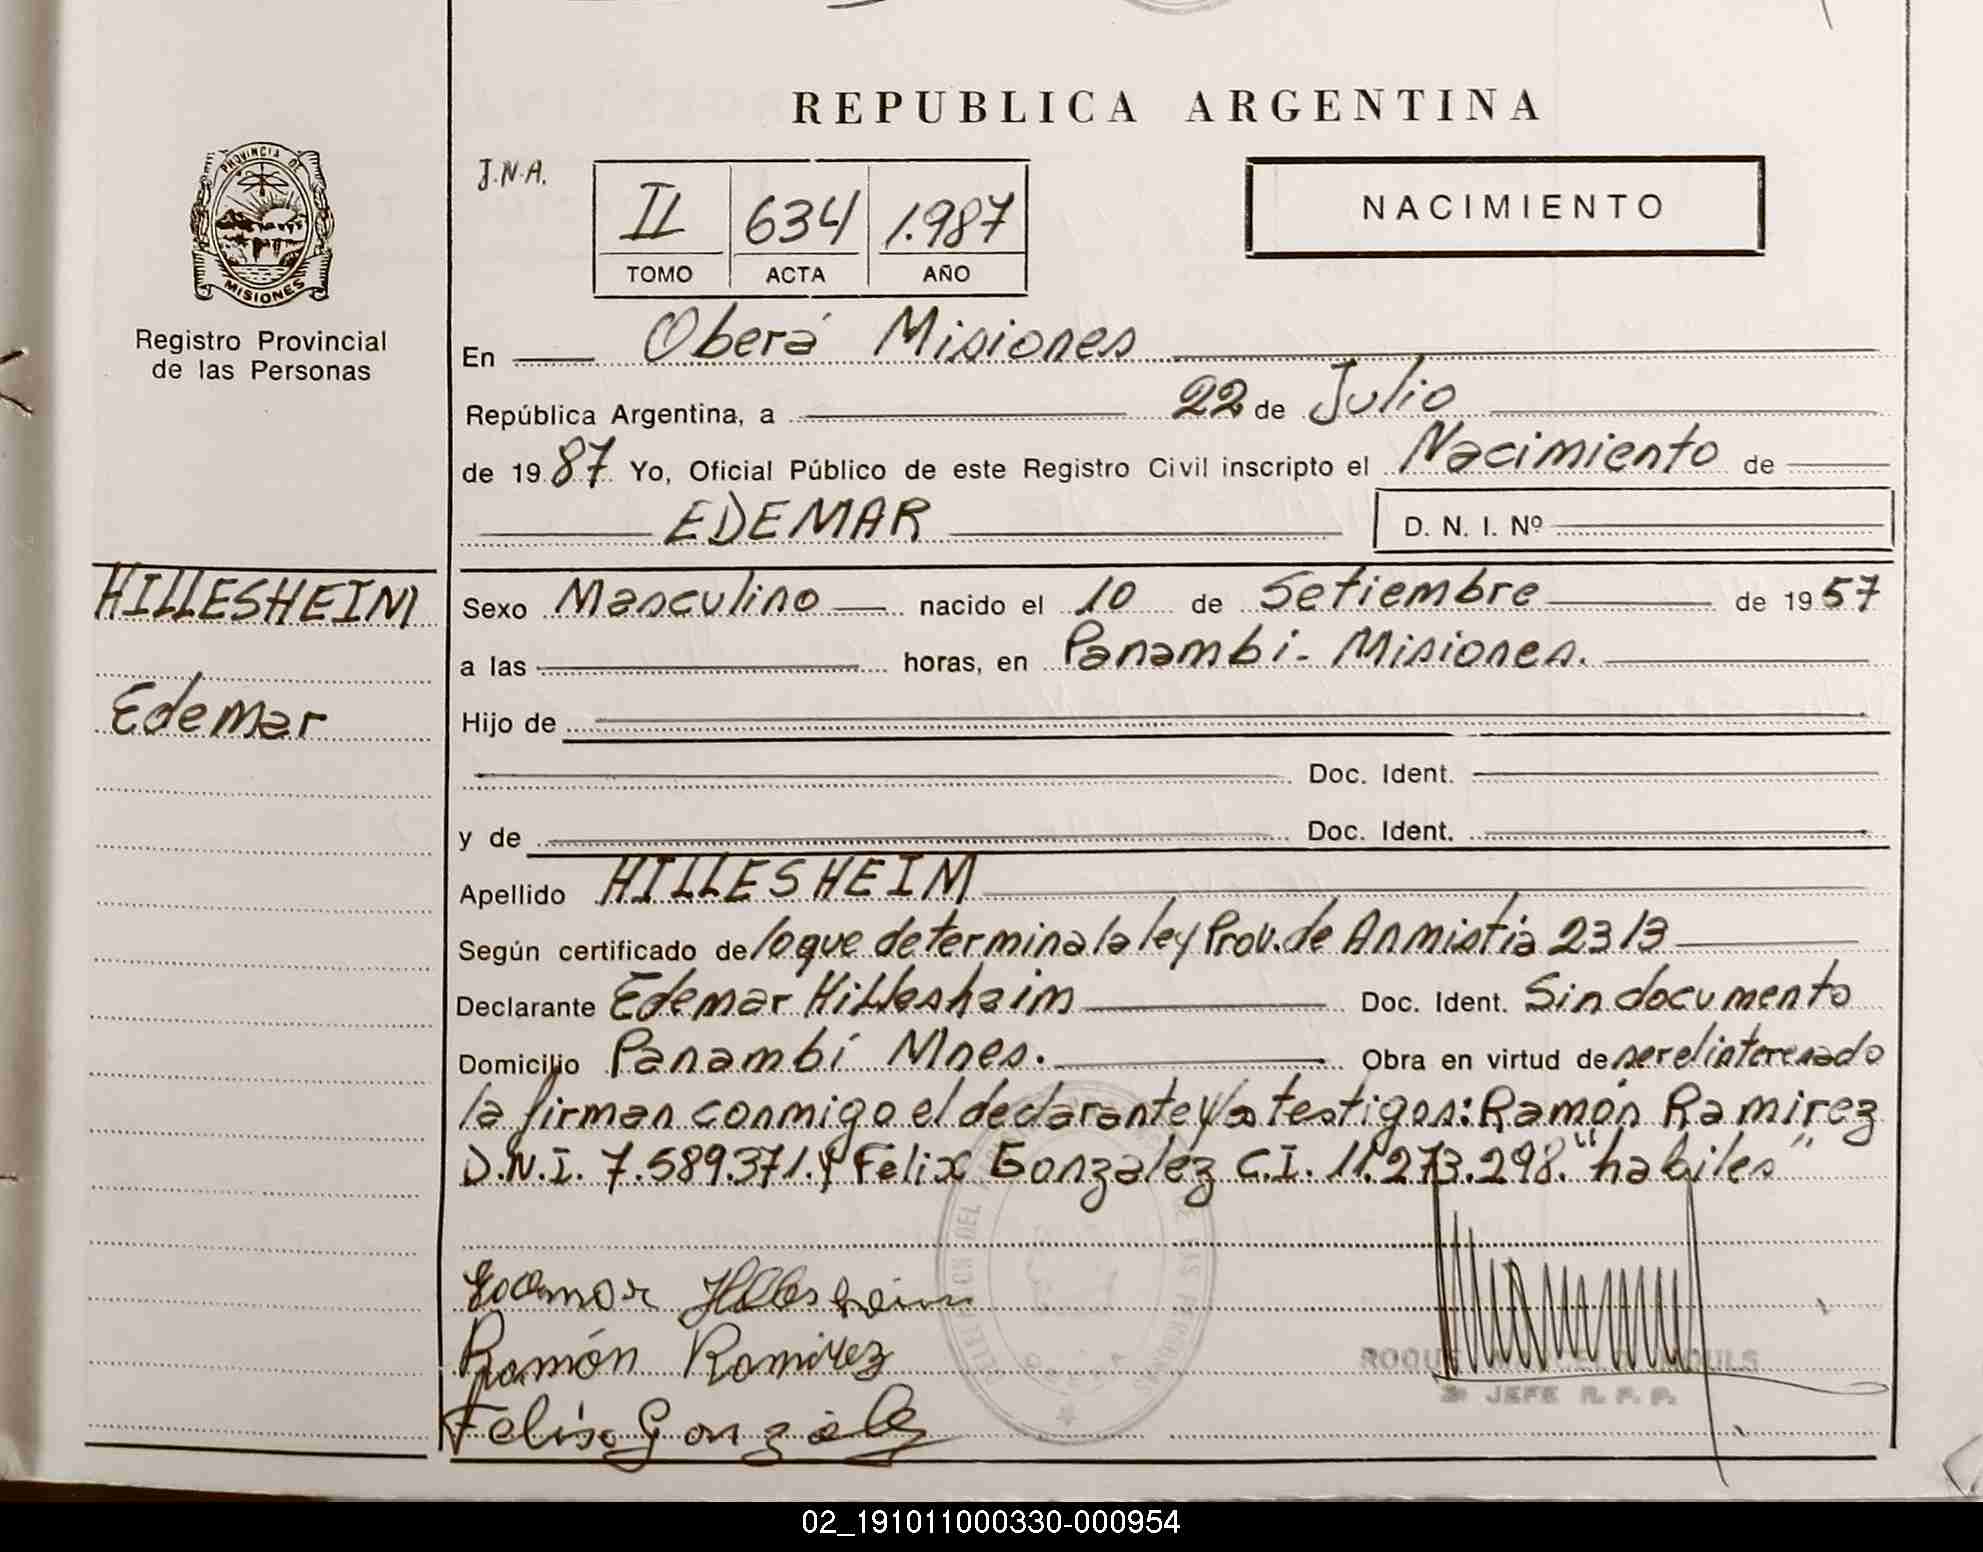 REPUBLICA ARGENTINA
PROVINCIA DE
MISIONES
Registro Provincial
de las Personas
HILLESHEIM
Edemar
J.N.A.
II 634 1.987
TOMO ACTA AÑO
NACIMIENTO
En Oberá Misiones
República Argentina, a 22 de Julio
de 1987 Yo, Oficial Público de este Registro Civil inscripto el Nacimiento de
EDEMAR D. N. I. Nº
Sexo Masculino nacido el 10 de Setiembre de 1957
a las horas, en Panambi- Misiones.
Hijo de
Doc. Ident.
y de Doc. Ident.
Apellido HILLESHEIM
Según certificado de lo que determina la ley Prov. de Anmistia 2313
Declarante Edemar Hillesheim Doc. Ident. Sin documento
Domicilio Panambí Mnes. Obra en virtud de ser el interesado
la firman conmigo el declarante y los testigos: Ramón Ramirez
D.N.I. 7.589.371. y Felix Gonzalez C.I. 11.273.298. "habiles"
Edemar Hillesheim
Ramón Ramirez
Felix Gonzalez
ROQUE
JEFE R. P. P.
02_191011000330-000954